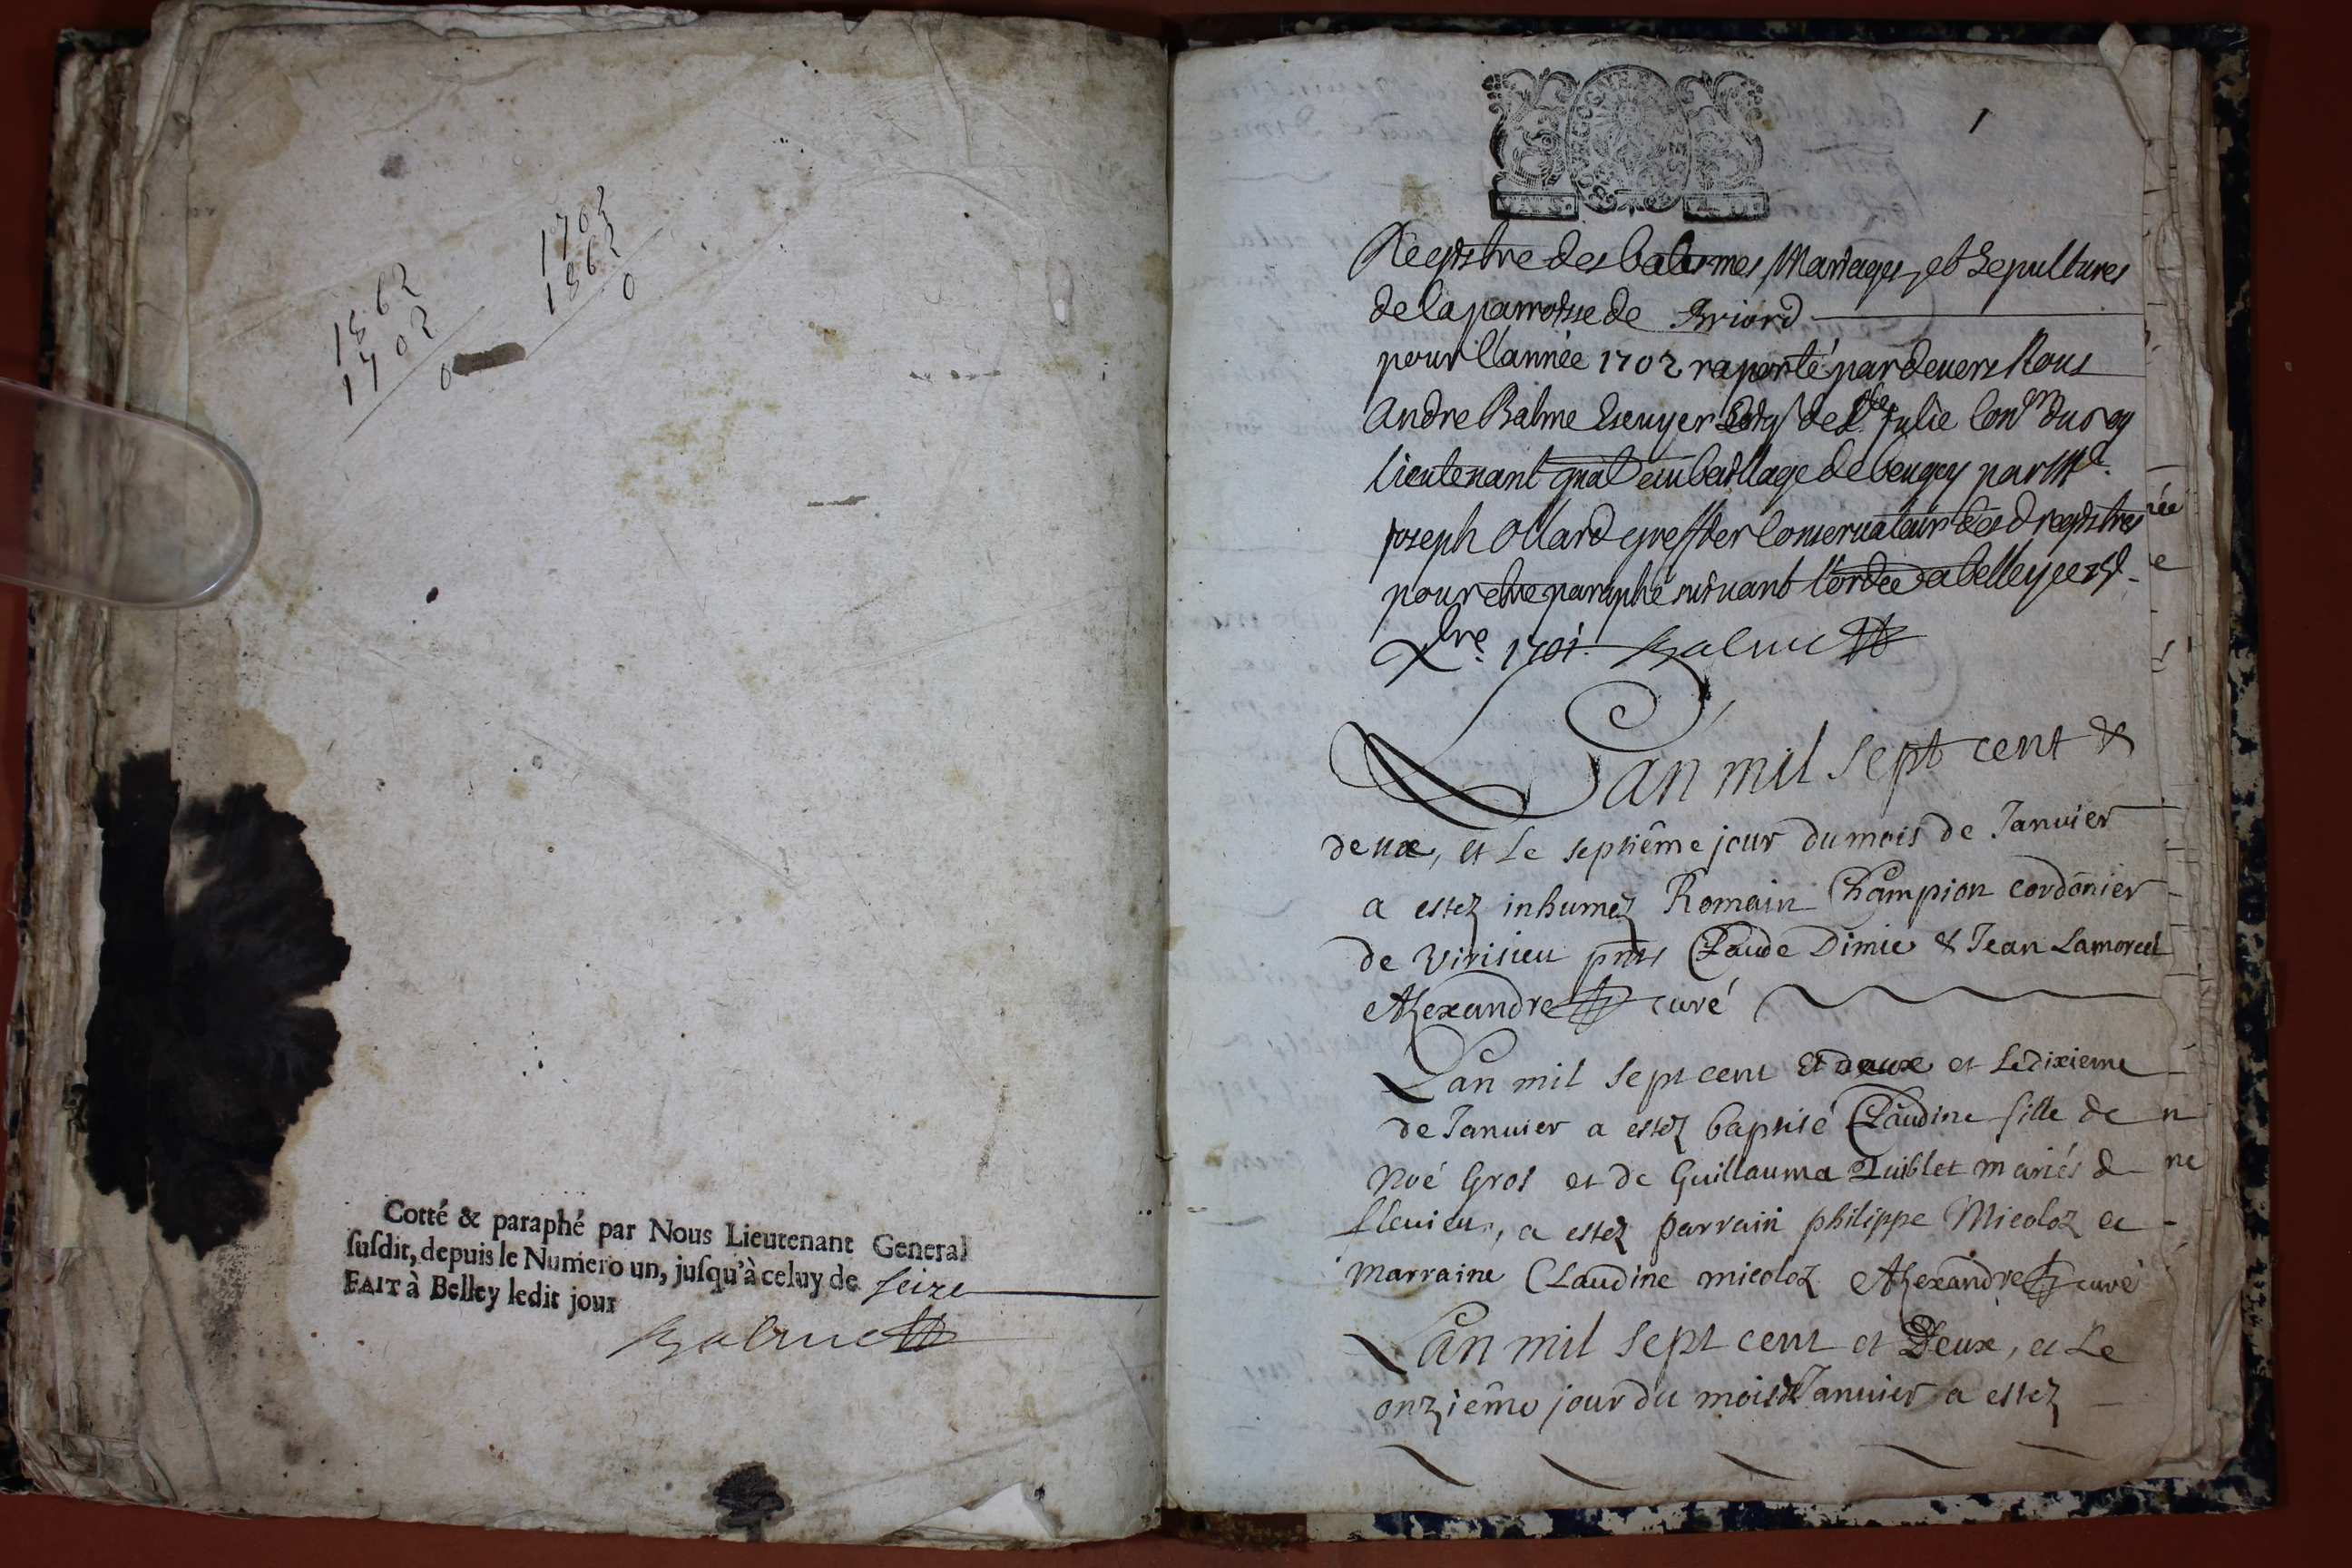 1862
1702
0
1702
1862
0
Cotté & paraphé par Nous Lieutenant General
ſuſdit, depuis le Numero un, juſqu'à celuy de seize
FAIT à Belley ledit jour
Balme
1
Registre des batesmes, Mariages, et Sepultures
de la parroisse de Briord
pour l'année 1702 raporté pardevers Nous
Andre Balme Escuyer Seigr de Ste Julie Conser du roy
lieutenant gnal au bailliage de beugey par Me
joseph Ollard greffier Conservateur desd registres
pour etre paraphé suivant l'ordce a belley ce
Xbre 1701. Balme
L'an mil sept cent &
deux, et Le septiême jour du mois de Janvier
a estez inhumez Romain Champion cordonier
de virisieu pnts Claude Dimie & Jean Lamorcel
Alexandre curé
L'an mil sept cent et deux et Le dixieme
de Janvier a estez baptisé Claudine fille de
Noé Gros et de Guillauma Quiblet mariés d
flevieu, a estez parrain philippe Micoloz et
marraine Claudine micoloz Alexandre curé
L'an mil sept cent et Deux, et Le
onziême jour du mois de Janvier a estez